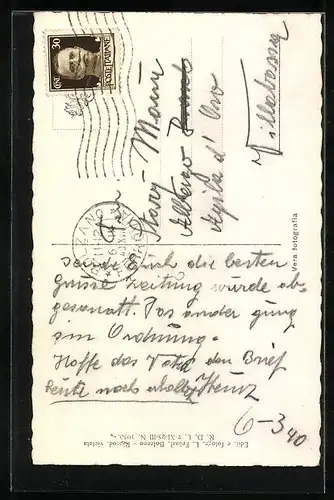 POSTE ITALIANE
30
CENT.
Frau
Mairi
Albergo
Aquila d'Oro
Villabassa
BOLZANO
Vera fotografia
sende Euch die besten
Grüsse Zeitung wurde ab-
gesandt. Das andere ging
in Ordnung.
Hoffe das Vater den Brief
heute noch erhält. Heinz
6-3 40
Ediz. e fotogr. L. Fränzl, Bolzano - Riprod. vietata